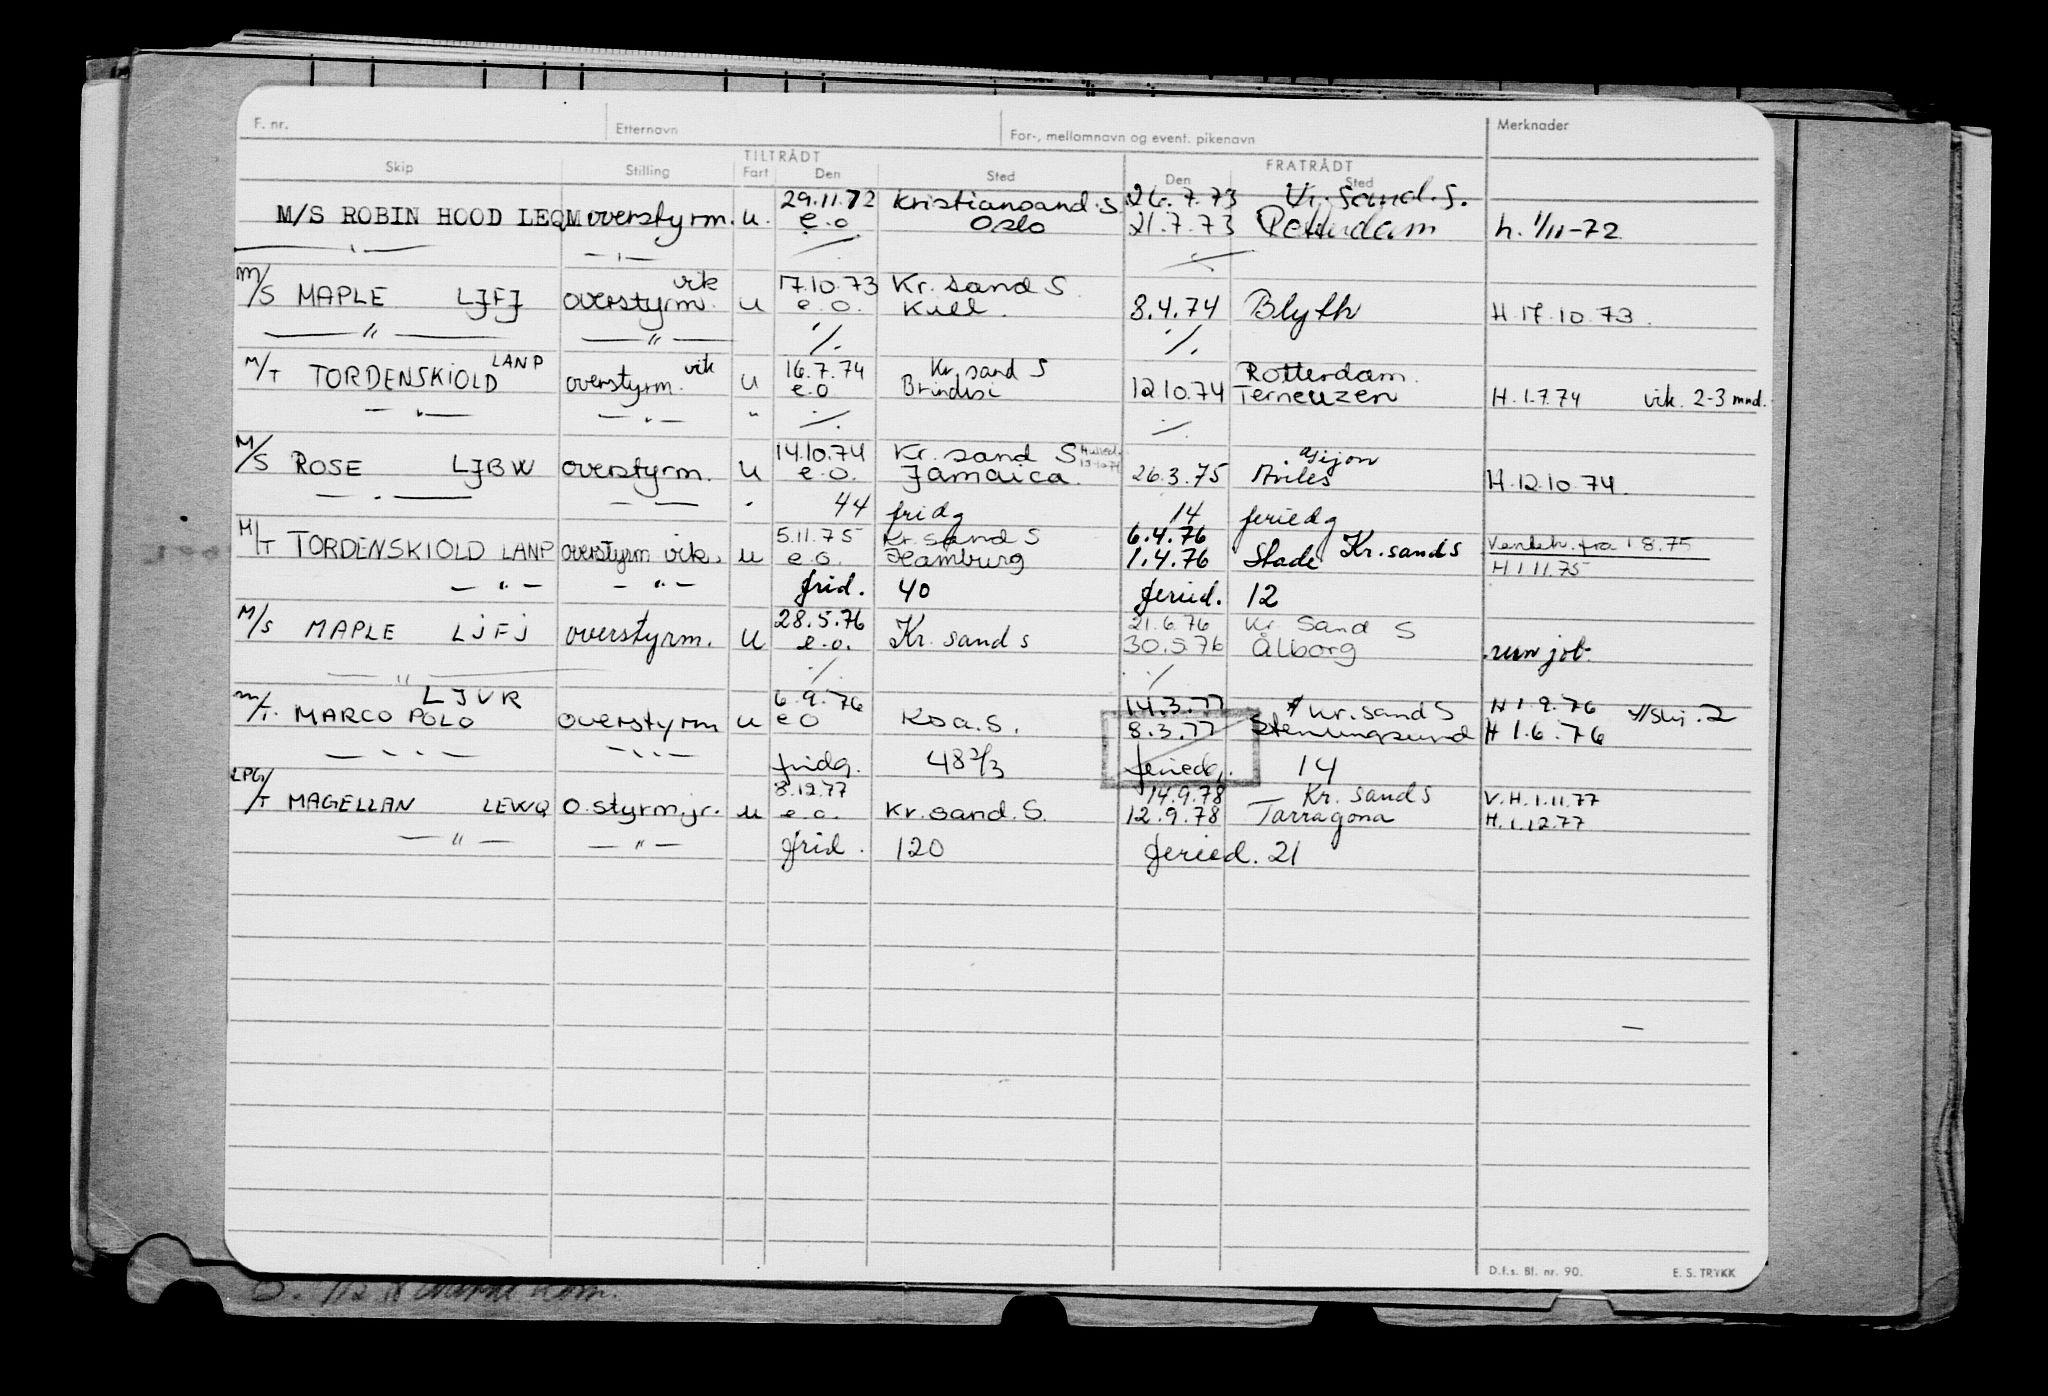 F. nr. Etternavn For-, mellomnavn og event. pikenavn Merknader
TILTRÅDT FRATRÅDT
Skip Stilling Fart Den Sted Den Sted
29.11.72 Kristiansand.S. 26.7.73 Kr.sand.S.
M/S ROBIN HOOD LEQM overstyrm. u. e.o Oslo 21.7.73 h. 1/11-72
— " — — " — ./. ./.
vik 17.10.73 Kr. sand S.
M/S MAPLE LJFJ overstyrm. u e.o. Kiel. 8.4.74 Blyth H.17.10.73.
— " — — " — ./. ./.
LANP vik 16.7.74 Kr. sand S Rotterdam.
M/T TORDENSKIOLD overstyrm. u e.o Brindisi 12.10.74 Terneuzen H.1.7.74 vik. 2-3 mnd.
— " — — " — " ./. ./.
14.10.74 Kr. sand S Gijon
M/S ROSE LJBW overstyrm. u e.o. Jamaica. 26.3.75 Aviles H.12.10.74.
— " — — " — 44 fridg 14 feriedg
5.11.75 Kr. sand S 6.4.76 Kr.sand S
M/T TORDENSKIOLD LANP overstyrm vik. u e.o. Hamburg 1.4.76 Stade fra 1 8.75
H 1 11.75
— " — — " — frid. 40 feried. 12
28.5.76 21.6.76 Kr. Sand S
M/S MAPLE LJFJ overstyrm. u e.o. Kr. sand s 30.5.76 Ålborg run job.
— " — ./. ./.
LJVR 6.9.76 14.3.77 Kr.sand S H 1 9.76
M/T. MARCO POLO overstyrm u e o Ksa.S. 8.3.77 Stenungsund H 1.6.76
— " — — " — fridg. 48 2/3 feriedg. 14
8.12.77 14.9.78 Kr. sand S V.H.1.11.77
LPG/T MAGELLAN LEWQ o.styrm.jr. u e.o. Kr.sand.S. 12.9.78 Tarragona H.1.12.77
— " — — " — frid. 120 feried. 21
D.f.s. Bl. nr. 90. E. S. TRYKK